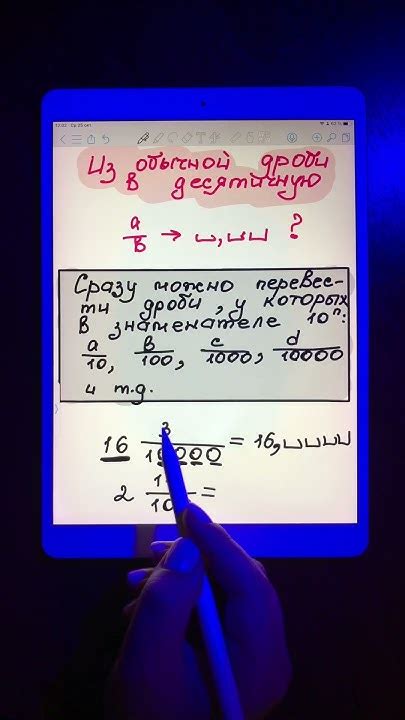 Из обычной дроби
в десятичную
a/b → ␣,␣␣ ?
Сразу можно перевес-
ти дроби, у которых
в знаменателе 10ⁿ:
a/10, b/100, c/1000, d/10000
и т.д.
16 3/10000 = 16,␣␣␣␣
2 =